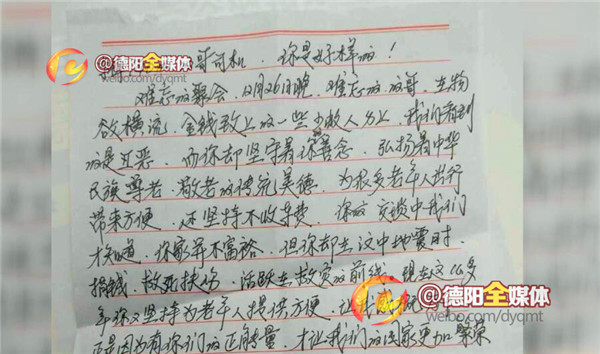 @德阳全媒体
weibo.com/dyqmt
哥司机，你是好样的！
难忘的聚会，12月26日晚，难忘的的哥，在物
欲横流，金钱至上的一些少数人身上，我们看到
的是丑恶，而你却坚守着你善念，弘扬着中华
民族尊老、敬老的传统美德，为很多老年人出行
带来方便，还坚持不收车费，你的交谈中我们
才知道，你家并不富裕，但你却在汶川地震时
捐钱，救死扶伤，活跃在救灾的前线，现在这么多
年你又坚持为老年人提供方便，让我
正是因为有你们的正能量，才让我们的国家更加繁荣
@德阳全媒体
weibo.com/dyqmt